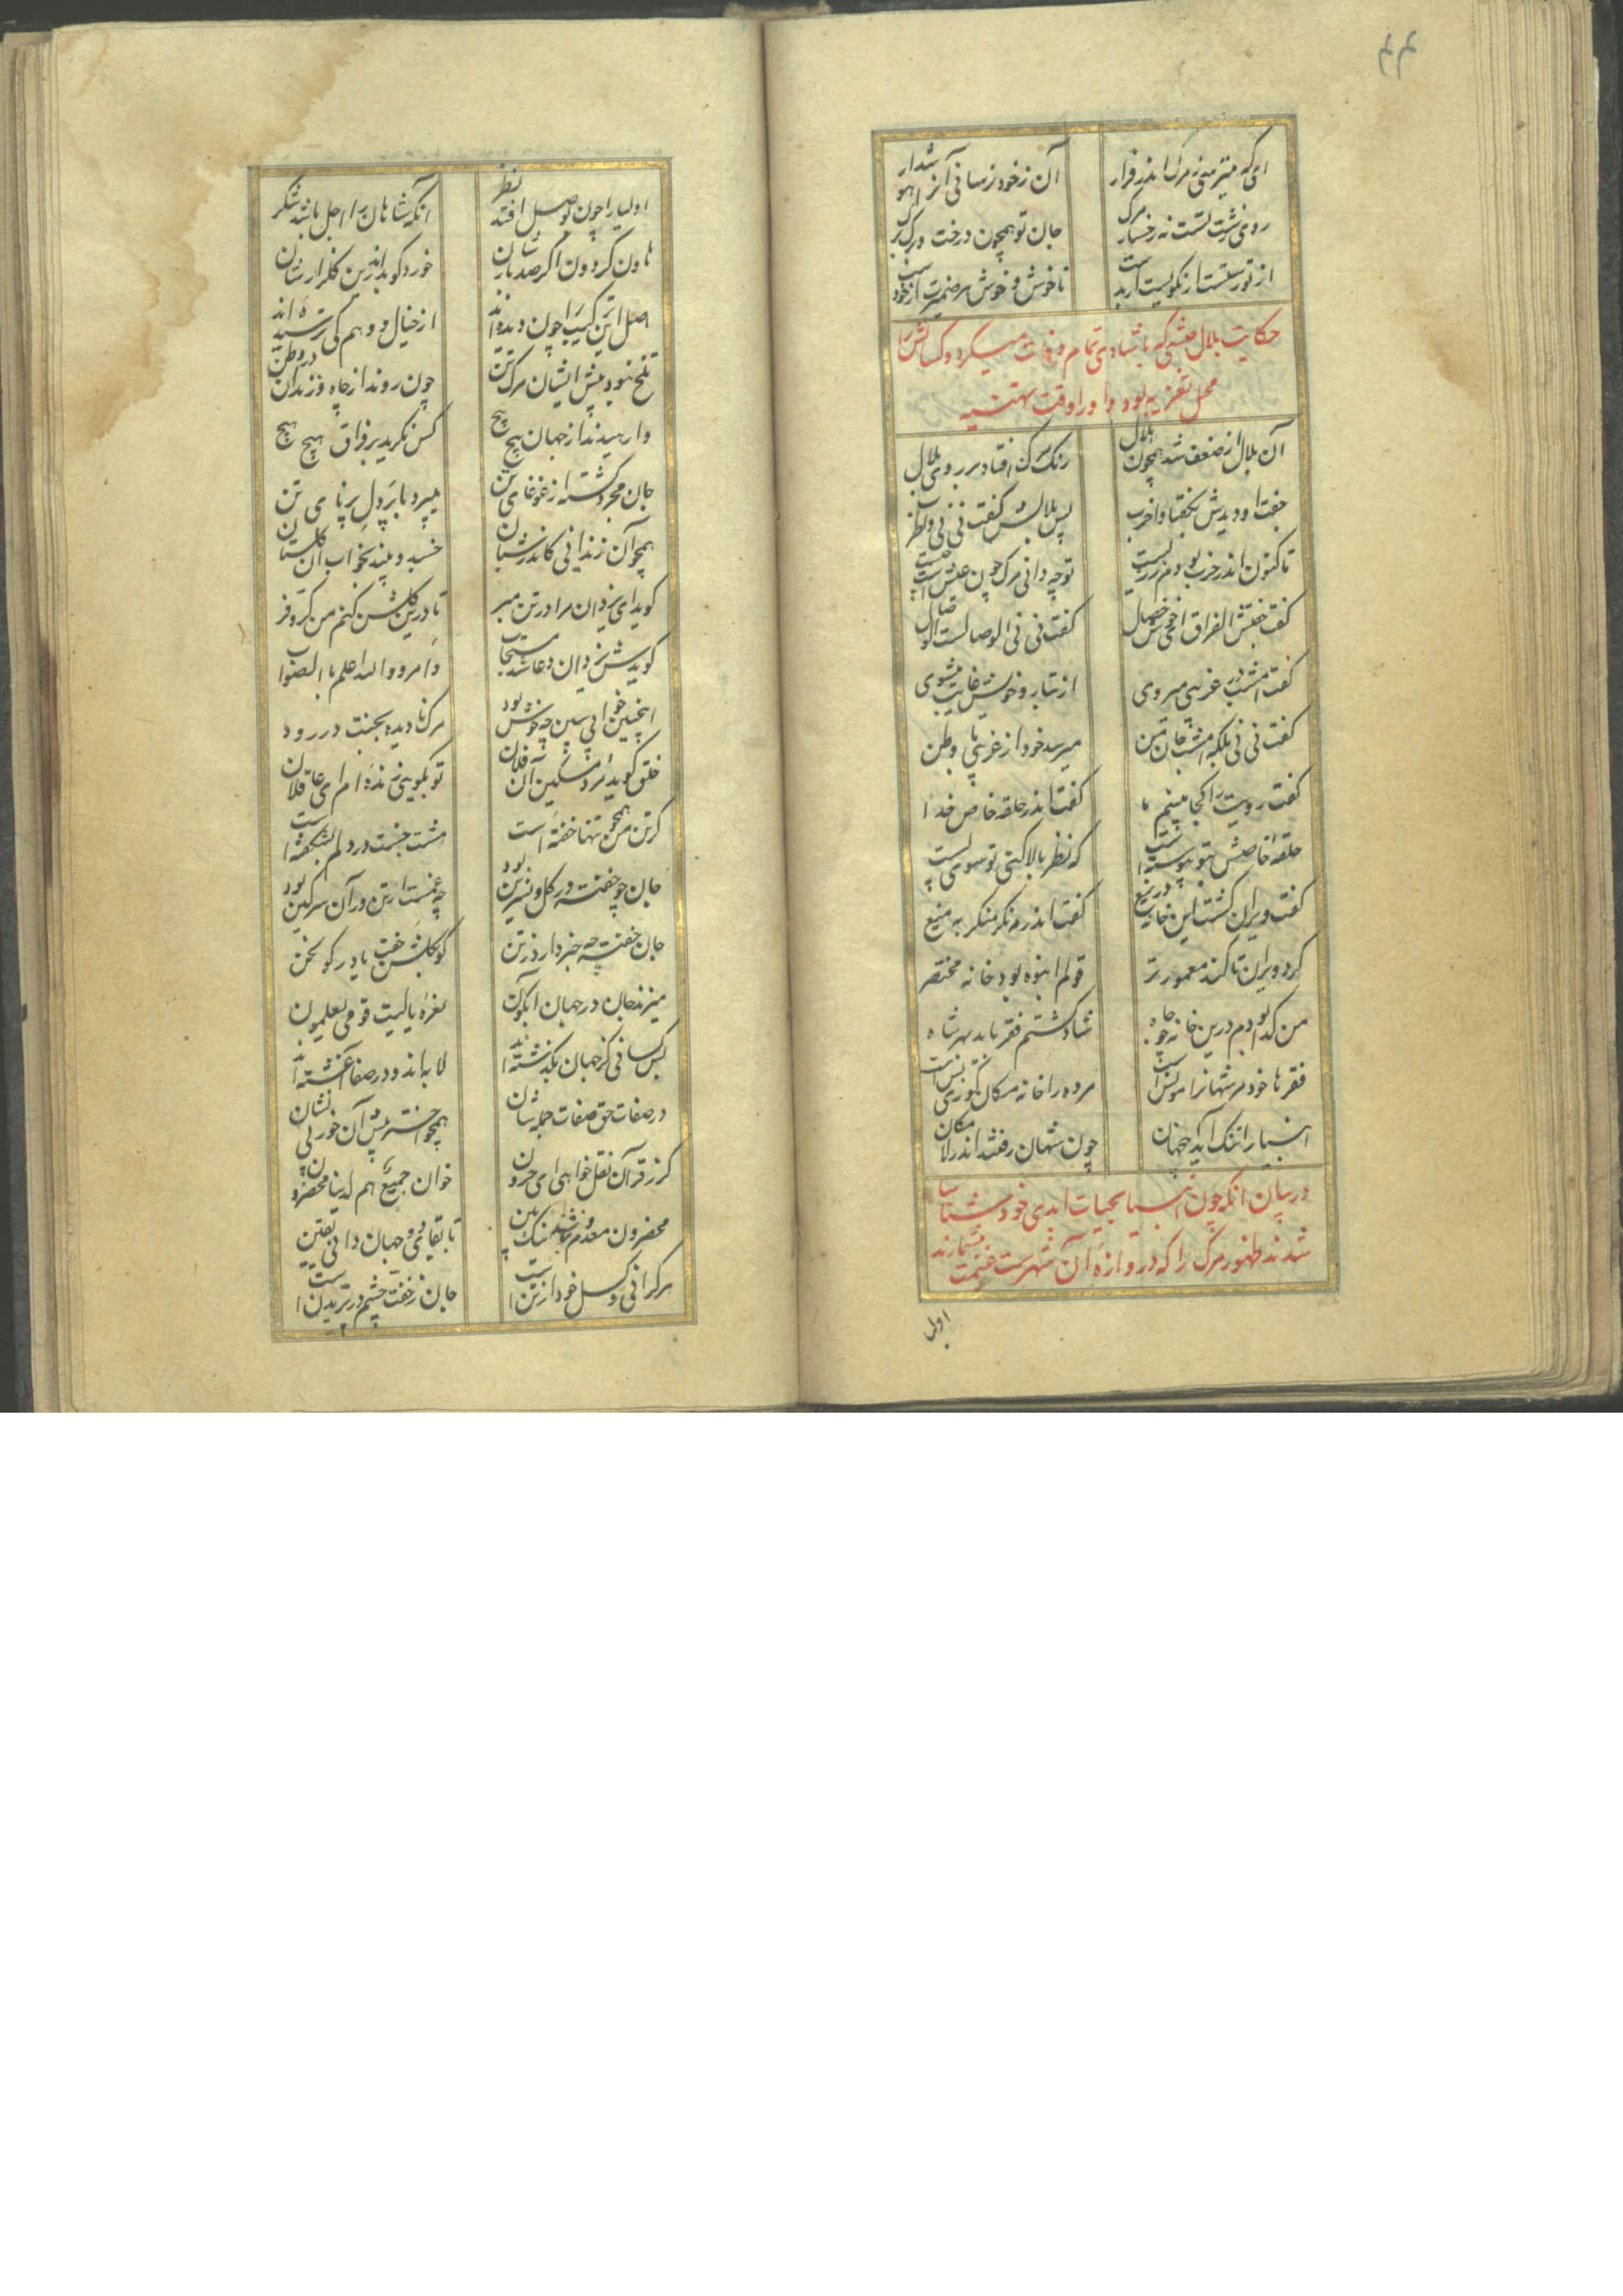 ۴۴
ای که میترسی ز مرگ اندر فرار
آن ز خود ترسانی آنرا هوشدار
روی زشت تست نه رخسار مرگ
جان تو همچون درخت و مرگ برگ
از تو رستست ار نکویست ار بدست
ناخوش و خوش هر ضمیرت از خودست
حکایت بلال حبشی که باشادی تمام وفات میکرد و کسانش را
محل تعزیه بود و او را وقت تهنیه
آن بلال از ضعف شد همچون هلال
رنگ مرگ افتاد بر روی بلال
جفت او دیدش بگفتا واحرب
پس بلالش گفت نی نی واطرب
تاکنون اندر حرب بودم ز زیست
تو چه دانی مرگ چون عیش است و چیست
گفت جفتش الفراق ای خوش خصال
گفت نی نی الوصالست الوصال
گفت امشب در غریبی میروی
از تبار و خویش غایب میشوی
گفت نی نی بلکه امشب جان من
میرسد خود از غریبی با وطن
گفت رویت را کجا بینیم ما
گفت اندر حلقه خاص خدا
حلقه خاصش بتو پیوسته است
که نظر بالا کنی تو سوی پست
گفت ویران گشت این خانه دریغ
گفت اندر مه نگر منگر به میغ
کرد ویران تا کند معمورتر
قومم انبوه بود خانه مختصر
من گدا بودم درین خانه چو چاه
شاد گشتم فقر باید بهر شاه
فقرها خود مر شهانرا مونس است
مرده را خانه مکان گوری بس است
انبیا را تنگ آید جهان
چون شهان رفتند اندر لامکان
در بیان آنکه چون انبیا بحیات ابدی خود شتابا
شدند ظهور مرگ را که دروازه آن شهرست غنیمت میشمارند
اولیا
اولیا را چون بوصل افتد نظر
آنکه شاهان را اجل باشد شکر
هاون گردون اگر صد بارشان
خورد کوبد اندرین گلزارشان
اصل این ترکیب را چون دیده‌اند
از خیال و وهم کی ترسیده‌اند
تلخ نبود پیش ایشان مرگ تن
چون روند از چاه و زندان در وطن
وارهیدند از جهان پیچ پیچ
کس نگرید بر فوات هیچ هیچ
جان مجرد گشته از غوغای تن
میپرد با پر دل بی پای تن
همچو آن زندانی کاندر شبان
خسبد و بیند بخواب آن گلستان
گوید ای یزدان مرا در تن مبر
تا درین گلشن کنم من کر و فر
گویدش یزدان دعا شد مستجاب
وامرو والله اعلم بالصواب
اینچنین خوابی ببین چه خوش بود
مرگ نادیده بجنت در رود
خلق گوید مرد مسکین آن فلان
تو بگویی زنده‌ام ای عاقلان
گر تن من همچو تنها خفته است
هشت جنت در دلم بشکفته است
جان چو خفته در گل و نسرین بود
چه غمست ار تن در آن سرگین بود
جان خفته چه خبر دارد ز تن
کو بگلشن خفت یا در گولخن
میزند جان در جهان آبگون
نعره یا لیت قومی یعلمون
بس کسانی کز جهان بگذشته‌اند
لا به‌اند و در صفات آغشته‌اند
در صفات حق صفات جمله شان
همچو اختر پیش آن خور بی نشان
گر ز قرآن نقل خواهی ای حرون
خوان جمیع هم لدینا محضرون
محضرون معدوم نباشد نیک بین
تا بقای دو جهان دانی یقین
مرگ دانی وصل خود از تن
جان ز خفت چشم در تن